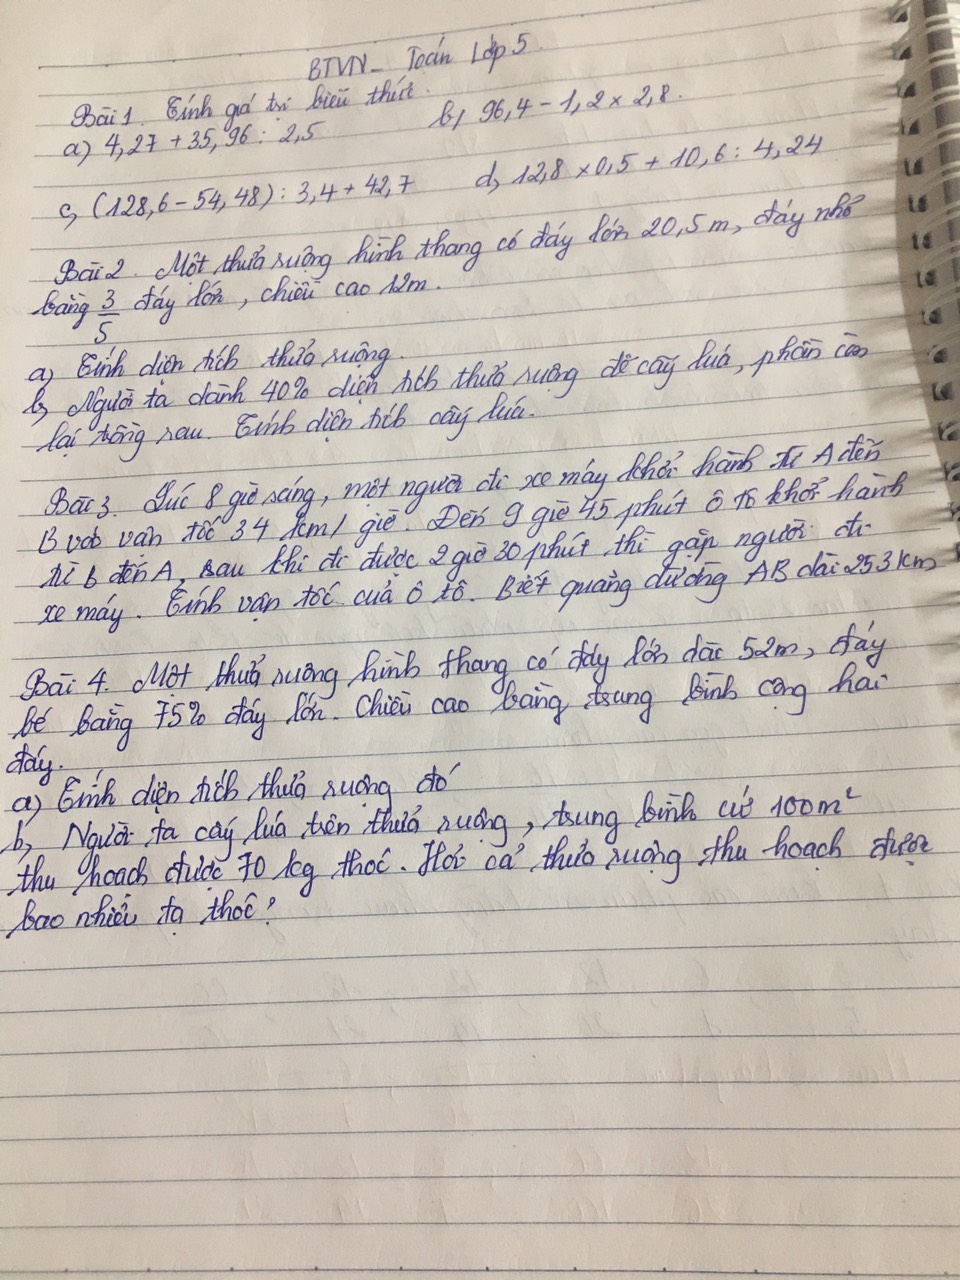 BTVN - Toán Lớp 5.
Bài 1. Tính giá trị biểu thức.
a) 4,27 + 35,96 : 2,5 b, 96,4 - 1,2 x 2,8.
c, (128,6 - 54,48) : 3,4 + 42,7 d, 12,8 x 0,5 + 10,6 : 4,24
Bài 2. Một thửa ruộng hình thang có đáy lớn 20,5 m, đáy nhỏ
bằng 3/5 đáy lớn, chiều cao 12m.
a) Tính diện tích thửa ruộng.
b, Người ta dành 40% diện tích thửa ruộng để cấy luá, phần còn
lại trồng rau. Tính diện tích cấy luá.
Bài 3. Lúc 8 giờ sáng, một người đi xe máy khởi hành từ A đến
B với vận tốc 34 km/giờ. Đến 9 giờ 45 phút ô tô khởi hành
từ B đến A, sau khi đi được 2 giờ 30 phút thì gặp người đi
xe máy. Tính vận tốc của ô tô. Biết quãng đường AB dài 253 km
Bài 4. Một thửa ruộng hình thang có đáy lớn dài 52m, đáy
bé bằng 75% đáy lớn. Chiều cao bằng trung bình cộng hai
đáy.
a) Tính diện tích thửa ruộng đó
b, Người ta cấy luá trên thửa ruộng, trung bình cứ 100m²
thu hoạch được 70 kg thóc. Hỏi cả thửa ruộng thu hoạch được
bao nhiêu tạ thóc?